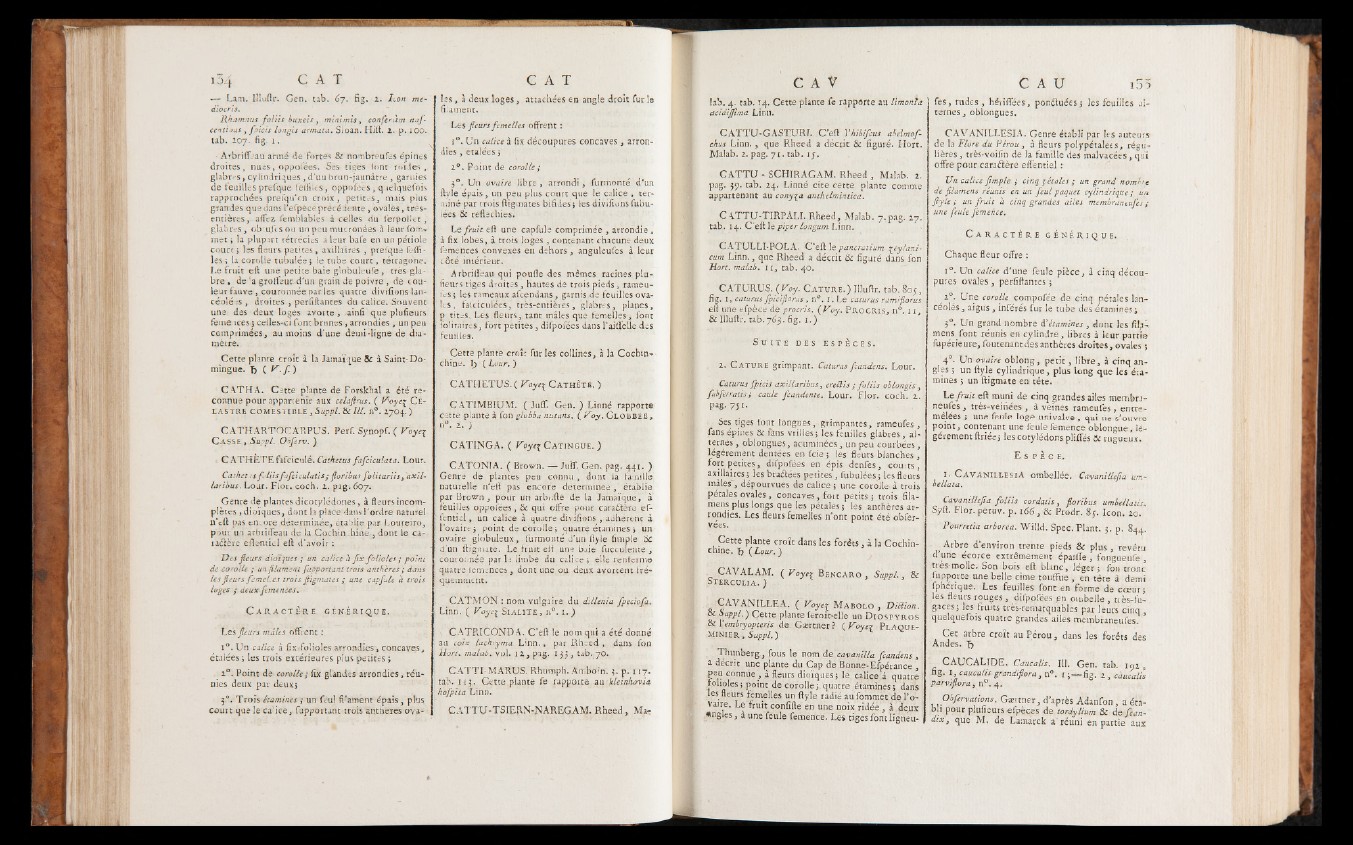 134 C A T
— Lam. Illustr. Gen. tab. 67. fig. 2. Icon me-
diocris.
Rhamnus foliis buxeis, minimis, confertim nas-
centibus, spicis longis armata. Sloan. Hist. 2. p. 100.
tab. 207. fig. 1.
Arbrisseau armé de fortes & nombreuses épines
droites, nues, opposées. Ses tiges sont roides,
glabres, cylindriques, d'un brun-jaunâtre, garnies
de feuilles presque sessiles, opposées, quelquefois
rapprochées presqu'en croix, petites, mais plus
grandes que dans l'espèce précédente, ovales, très-
entières, assez semblables à celles du serpolet,
glabres, obtuses ou un peu mucronées à leur som-
met; la plupart rétrécies à leur base en un pétiole
court; les fleurs petites, axillaires, presque sessi-
les; la corolle tubulée; le tube court, tétragone.
Le fruit est une petite baie globuleuse, très-gla-
bre, de la grosseur d'un grain de poivre, de cou-
leur fauve, couronnée par les quatre divisions lan-
céolées, droites, persistantes du calice. Souvent
une des deux loges avorte, ainsi que plusieurs
semences; celles-ci sont brunes, arrondies, un peu
comprimées, au moins d'une demi-ligne de dia-
mètre.
Cette plante croît à la Jamaïque & à Saint-Do-
mingue. ♄ ( V. f. )
CATHA. Cette plante de Forskhal a été re-
connue pour appartenir aux celastrus. ( Voyez CÉ-
LASTRE COMESTIBLE, Suppl. & Ill. n°. 2704. )
CATHARTOCARPUS. Pers. Synops. ( Voyez
CASSE, Suppl. Observ. )
CATHÈTE fasciculé. Cathetus fasciculata. Lour.
Cathetus foliis fasciculatis; floribus solitariis, axil-
laribus. Lour. Flor. coch. 2. pag. 607.
Genre de plantes dicotylédones, à fleurs incom-
plètes, dioïques, dont la place dans l'ordre naturel
n'est pas encore déterminée, établie par Loureiro,
pour un arbrisseau de la Cochinchine, dont le ca-
ractère essentiel est d'avoir :
Des fleurs dioïques; un calice à six folioles; point
de corolle; un filament supportant trois anthères; dans
les fleurs femelles trois stigmates; une capsule à trois
loges; deux semences.
CARACTÈRE GÉNÉRIQUE.
Les fleurs mâles offrent :
1°. Un calice à six folioles arrondies, concaves,
étalées; les trois extérieures plus petites;
2°. Point de corolle; six glandes arrondies, réu-
nies deux par deux;
3°. Trois étamines; un seul filament épais, plus
court que le calice, supportant trois anthères ova-
C A T
les, à deux loges, attachées en angle droit sur le
filament.
Les fleurs femelles offrent :
1°. Un calice à six découpures concaves, arron-
dies, étalées;
2°. Point de corolle;
3°. Un ovaire libre, arrondi, surmonté d'un
style épais, un peu plus court que le calice, ter-
miné par trois stigmates bifides; les divisions subu-
lées & réfléchies.
Le fruit est une capsule comprimée, arrondie,
à six lobes, à trois loges, contenant chacune deux
semences convexes en dehors, anguleuses à leur
côté intérieur.
Arbrisseau qui pousse des mêmes racines plu-
sieurs tiges droites, hautes de trois pieds, rameu-
ses; les rameaux ascendans, garnis de feuilles ova-
les, fasciculées, très-entières, glabres, planes,
petites. Les fleurs, tant mâles que femelles, sont
solitaires, fort petites, disposées dans l'aisselle des
feuilles.
Cette plante croît sur les collines, à la Cochin-
chine. ♄ ( Lour. )
CATHETUS. ( Voyez CATHÈTE. )
CATIMBIUM. ( Juss. Gen. ) Linné rapporte
cette plante à son globba nutans. ( Voy. GLOBBÉE,
n°. 2. )
CATINGA. ( Voyez CATINGUE. )
CATONIA. ( Brown. — Juss. Gen. pag. 441. )
Genre de plantes peu connu, dont la famille
naturelle n'est pas encore déterminée, établie
par Brown, pour un arbuste de la Jamaïque, à
feuilles opposées, & qui offre pour caractère es-
sentiel, un calice à quatre divisions, adhérent à
l'ovaire; point de corolle; quatre étamines; un
ovaire globuleux, surmonté d'un style simple &
d'un stigmate. Le fruit est une baie succulente,
couronnée par le limbe du calice; elle renferme
quatre semences, dont une ou deux avortent fré-
quemment.
CATMON : nom vulgaire du dillenia speciosa.
Linn. ( Voyez SIALITE, n°. 1. )
CATRICONDA. C'est le nom qui a été donné
au coix lachryma Linn., par Rheed, dans son
Hort. malab. vol. 12, pag. 133, tab. 70.
CATTI-MARUS. Rhumph. Amboin. 3. p. 117.
tab. 113. Cette plante se rapporte au kleinhovia
hospita Linn.
CATTU-TSIERN-NAREGAM. Rheed, Ma-
C A V
lab. 4. tab. 14. Cette plante se rapporte au limonia
acidissima Linn.
CATTU-GASTURI. C'est l'hibiscus abelmos-
chus Linn., que Rheed a décrit & figuré. Hort.
Malab. 2. pag. 71. tab. 15.
CATTU-SCHIRAGAM. Rheed, Malab. 2.
pag. 39. tab. 24. Linné cite cette plante comme
appartenant au conyza anthelmintica.
CATTU-TIRPALI. Rheed, Malab. 7. pag. 27.
tab. 14. C'est le piper longum Linn.
CATULLI-POLA. C'est le pancratium zeylani-
cum Linn., que Rheed a décrit & figuré dans son
Hort. malab. 11, tab. 40.
CATURUS. ( Voy. CATURE. ) Illustr. tab. 805,
fig. 1, caturus spiciflorus, n°. 1. Le caturus ramiflorus
est une espèce de procris. ( Voy. PROCRIS, n°. 11,
& Illustr. tab. 763. fig. 1. )
SUITE DES ESPÈCES.
2. CATURE grimpant. Caturus scandens. Lour.
Caturus spicis axillaribus, erectis; foliis oblongis,
subserratis; caule scandente. Lour. Flor. coch. 2.
pag. 751.
Ses tiges sont longues, grimpantes, rameuses,
sans épines & sans vrilles; les feuilles glabres, al-
ternes, oblongues, acuminées, un peu courbées,
légérement dentées en scie; les fleurs blanches,
fort petites, disposées en épis denses, courts,
axillaires; les bractées petites, subulées; les fleurs
mâles, dépourvues de calice; une corolle à trois
pétales ovales, concaves, fort petits; trois fila-
mens plus longs que les pétales; les anthères ar-
rondies. Les fleurs femelles n'ont point été obser-
vées.
Cette plante croît dans les forêts, à la Cochin-
chine. ♄ ( Lour. )
CAVALAM. ( Voyez BENCARO, Suppl., &
STERCULIA. )
CAVANILLEA. ( Voyez MABOLO, Diction.
& Suppl. ) Cette plante seroit-elle un DIOSPYROS
& l'embryopteris de Gærtner? ( Voyez PLAQUE-
MINIER, Suppl. )
Thunberg, sous le nom de cavanilla scandens,
a décrit une plante du Cap de Bonne-Espérance,
peu connue, à fleurs dioïques; le calice à quatre
folioles; point de corolle; quatre étamines; dans
les fleurs femelles un style radié au sommet de l'o-
vaire. Le fruit consiste en une noix ridée, à deux
angles, à une seule semence. Les tiges sont ligneu-
C A U 135
ses, rudes, hérissées, ponctuées; les feuilles al-
ternes, oblongues.
CAVANILLESIA. Genre établi par les auteurs
de la Flore du Pérou, à fleurs polypétalées, régu-
lières, très-voisin de la famille des malvacées, qui
offre pour caractère essentiel :
Un calice simple; cinq pétales; un grand nombre
de filamens réunis en un seul paquet cylindrique; un
style; un fruit à cinq grandes ailes membraneuses;
une seule semence.
CARACTÈRE GÉNÉRIQUE.
Chaque fleur offre :
1°. Un calice d'une seule pièce, à cinq décou-
pures ovales, persistantes;
2°. Une corolle composée de cinq pétales lan-
céolés, aigus, insérés sur le tube des étamines;
3°. Un grand nombre d'étamines, dont les fila-
mens sont réunis en cylindre, libres à leur partie
supérieure, soutenant des anthères droites, ovales;
4°. Un ovaire oblong, petit, libre, à cinq an-
gles; un style cylindrique, plus long que les éta-
mines; un stigmate en tête.
Le fruit est muni de cinq grandes ailes membra-
neuses, très-veinées, à veines rameuses, entre-
mêlées; une seule loge univalve, qui ne s'ouvre
point, contenant une seule semence oblongue, lé-
gérement striée; les cotylédons plissés & rugueux.
ESPÈCE.
1. CAVANILLESIA ombellée. Cavanillesia um-
bellata.
Cavanillesia foliis cordatis, floribus umbellatis.
Syst. Flor. peruv. p. 166, & Prodr. 85. Icon. 20.
Pourretia arborea. Willd. Spec. Plant. 3. p. 844.
Arbre d'environ trente pieds & plus, revêtu
d'une écorce extrêmement épaisse, fongueuse,
très-molle. Son bois est blanc, léger; son tronc
supporte une belle cime touffue, en tête à demi
sphérique. Les feuilles sont en forme de cœur;
les fleurs rouges, disposées en ombelle, très-fu-
gaces; les fruits très-remarquables par leurs cinq,
quelquefois quatre grandes ailes membraneuses.
Cet arbre croît au Pérou, dans les forêts des
Andes. ♄
CAUCALIDE. Caucalis. Ill. Gen. tab. 192,
fig. 1, caucalis grandiflora, n°. 1; — fig. 2, caucalis
parviflora, n°. 4.
Observations. Gærtner, d'après Adanson, a éta-
bli pour plusieurs espèces de tordylium & de scan-
dix, que M. de Lamarck a réuni en partie aux